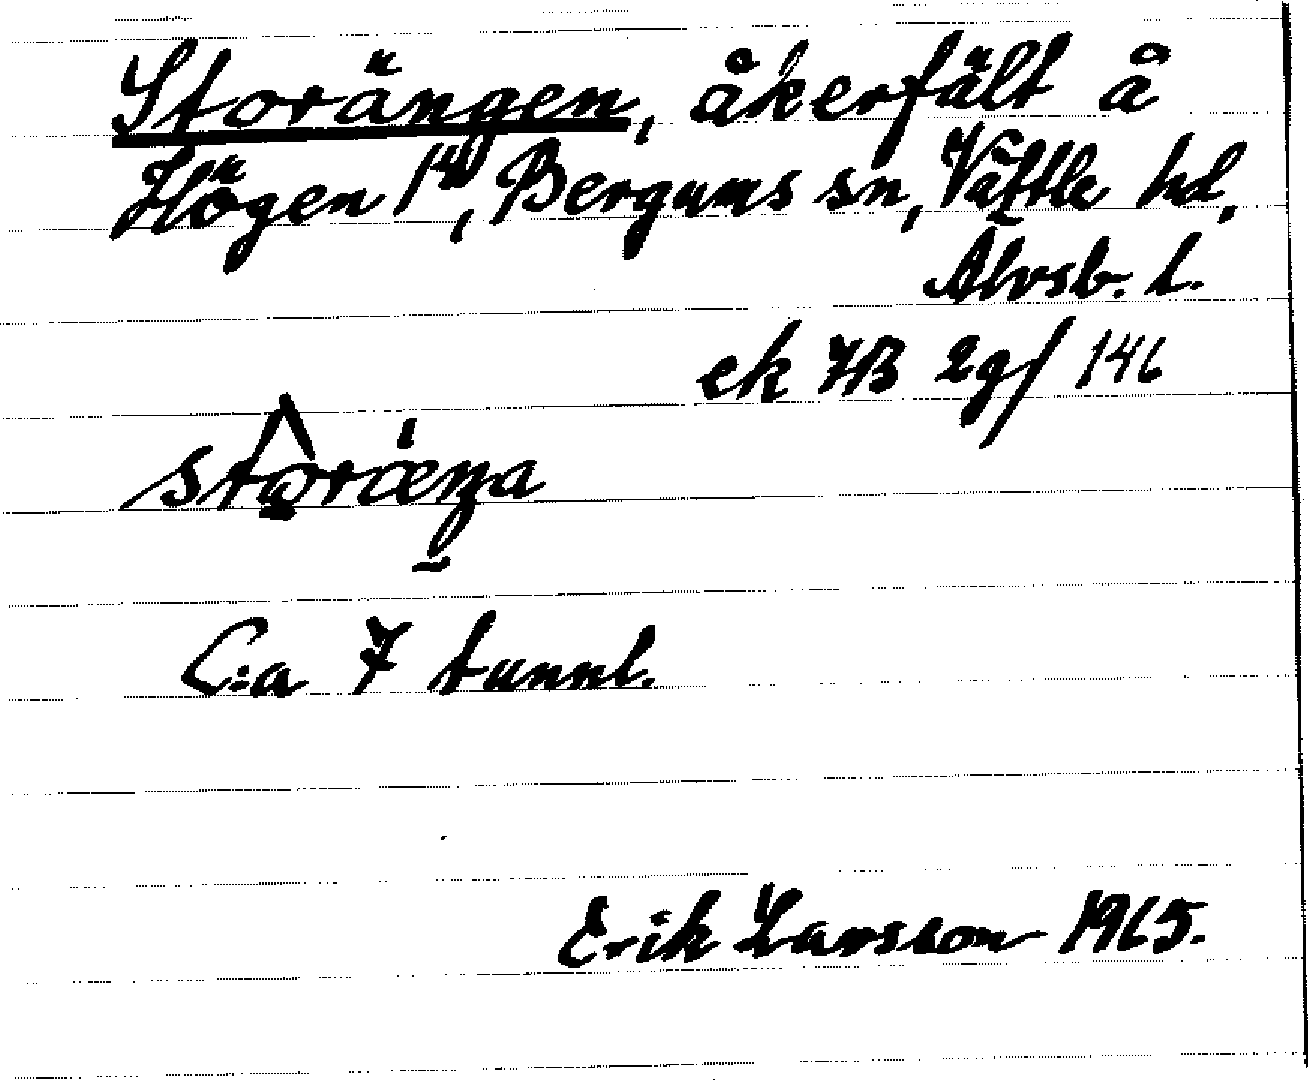 Storängen, åkerfält å
Högen 1⁴⁰, Bergums sn, Vättle hd,
Älvsb. l.
ek 7B 2g/146
storæŋa
C:a 7 tunnl.
Erik Larsson 1965.